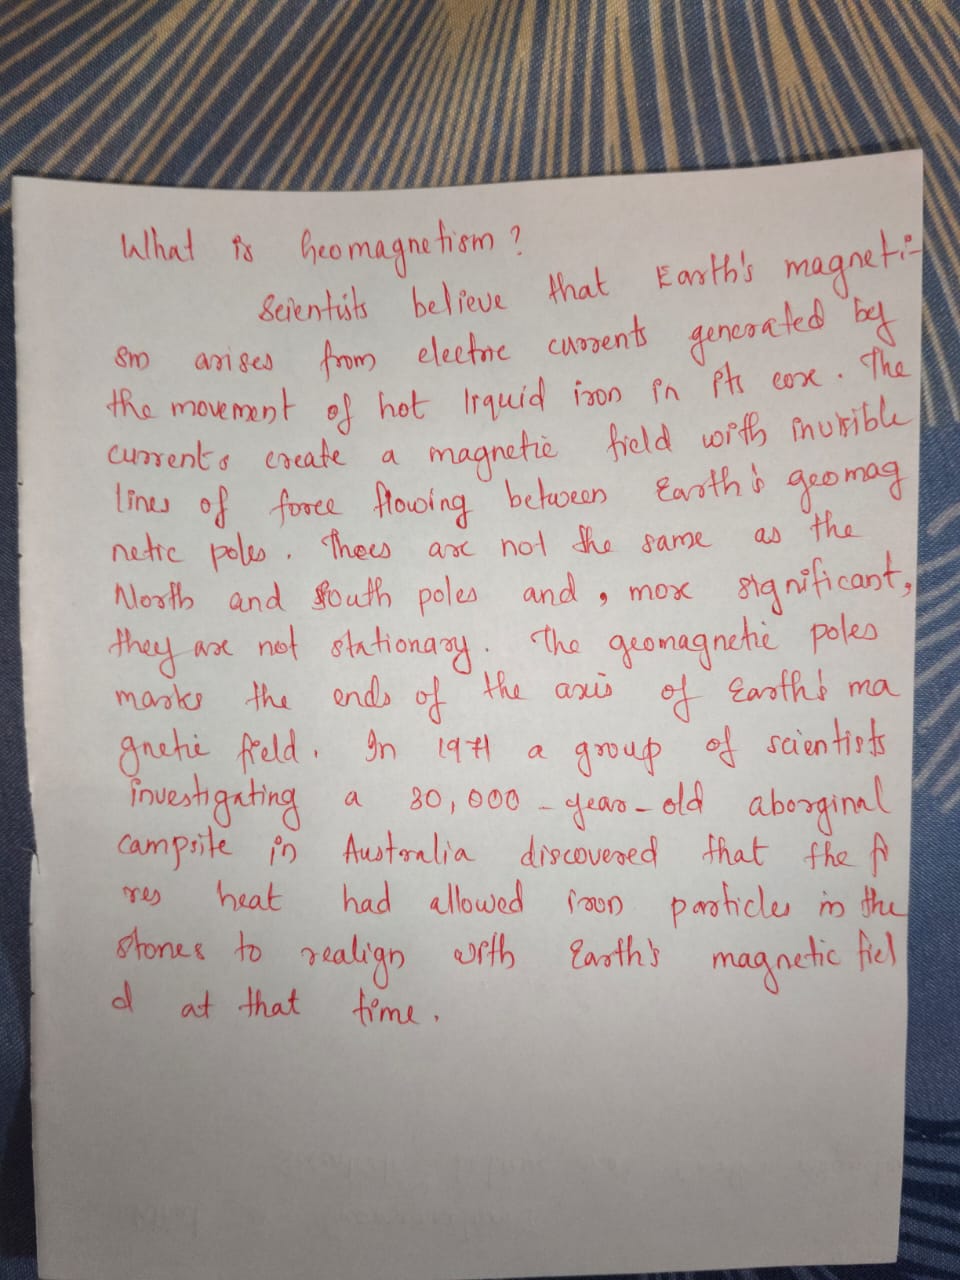 What is Geomagnetism?
Scientists believe that Earth's magneti-
sm arises from electric currents generated by
the movement of hot liquid iron in its core. The
currents create a magnetic field with invisible
lines of force flowing between Earth's geomag
netic poles. Thees are not the same as the
North and South poles and, more significant,
they are not stationary. The geomagnetic poles
marks the ends of the axis of Earth's ma
gnetic field. In 1971 a group of scientists
investigating a 30,000-year-old aborginal
campsite in Australia discovered that the fi
res heat had allowed iron particles in the
stones to realign with Earth's magnetic fiel
d at that time.